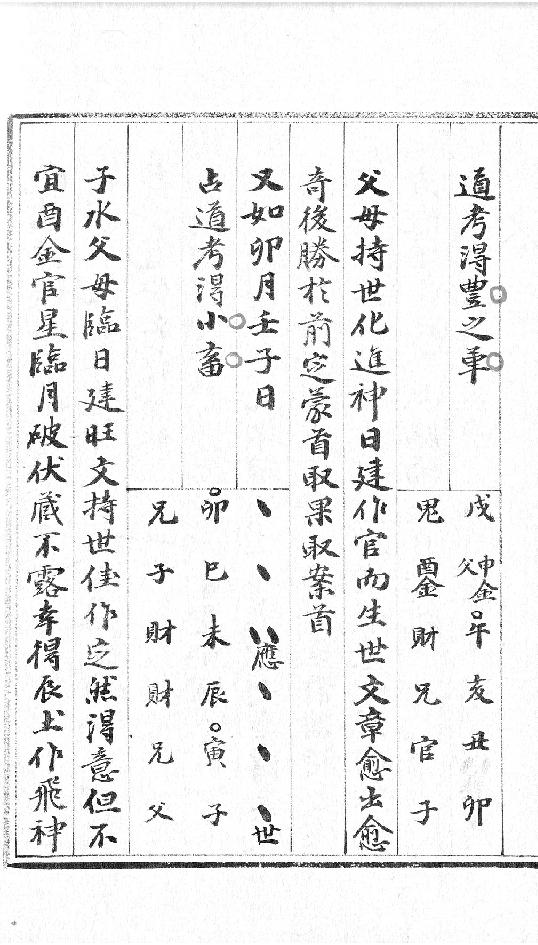 道考得豐之革
戌 申父金 午 亥 丑 卯
鬼 酉金 財 兄 官 子
父母持世化進神日建作官而生世文章愈出愈
奇後勝於前定蒙首取果取案首
又如卯月壬子日
、 、 、、應 、 、 、世
占道考得小畜
卯 巳 未 辰 寅 子
兄 子 財 財 兄 父
子水父母臨日建旺文持世佳作定然得意但不
宜酉金官星臨月破伏藏不露幸得辰土作飛神